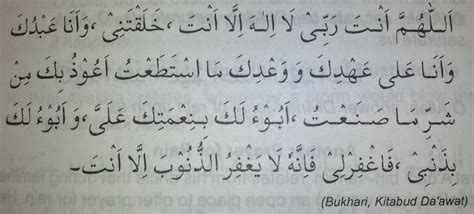 اَللّٰهُمَّ اَنْتَ رَبِّیْ لَا اِلٰهَ اِلَّا اَنْتَ ،خَلَقْتَنِیْ ،وَاَنَا عَبْدُكَ
وَاَنَا عَلٰی عَهْدِكَ وَ وَعْدِكَ مَا اسْتَطَعْتُ اَعُوْذُ بِكَ مِنْ
شَرِّ مَا صَنَعْتُ ،اَبُوْءُ لَكَ بِنِعْمَتِكَ عَلَیَّ، وَ اَبُوْءُ لَكَ
بِذَنْبِیْ ،فَاغْفِرْلِیْ فَاِنَّهٗ لَا یَغْفِرُ الذُّنُوْبَ اِلَّا اَنْتَ۔
(Bukhari, Kitabud Da'awat)